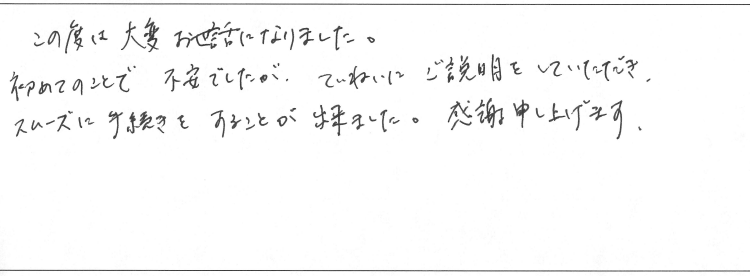 この度は大変お世話になりました。
初めてのことで不安でしたが、ていねいにご説明をしていただき、
スムーズに手続きをすることが出来ました。感謝申し上げます。